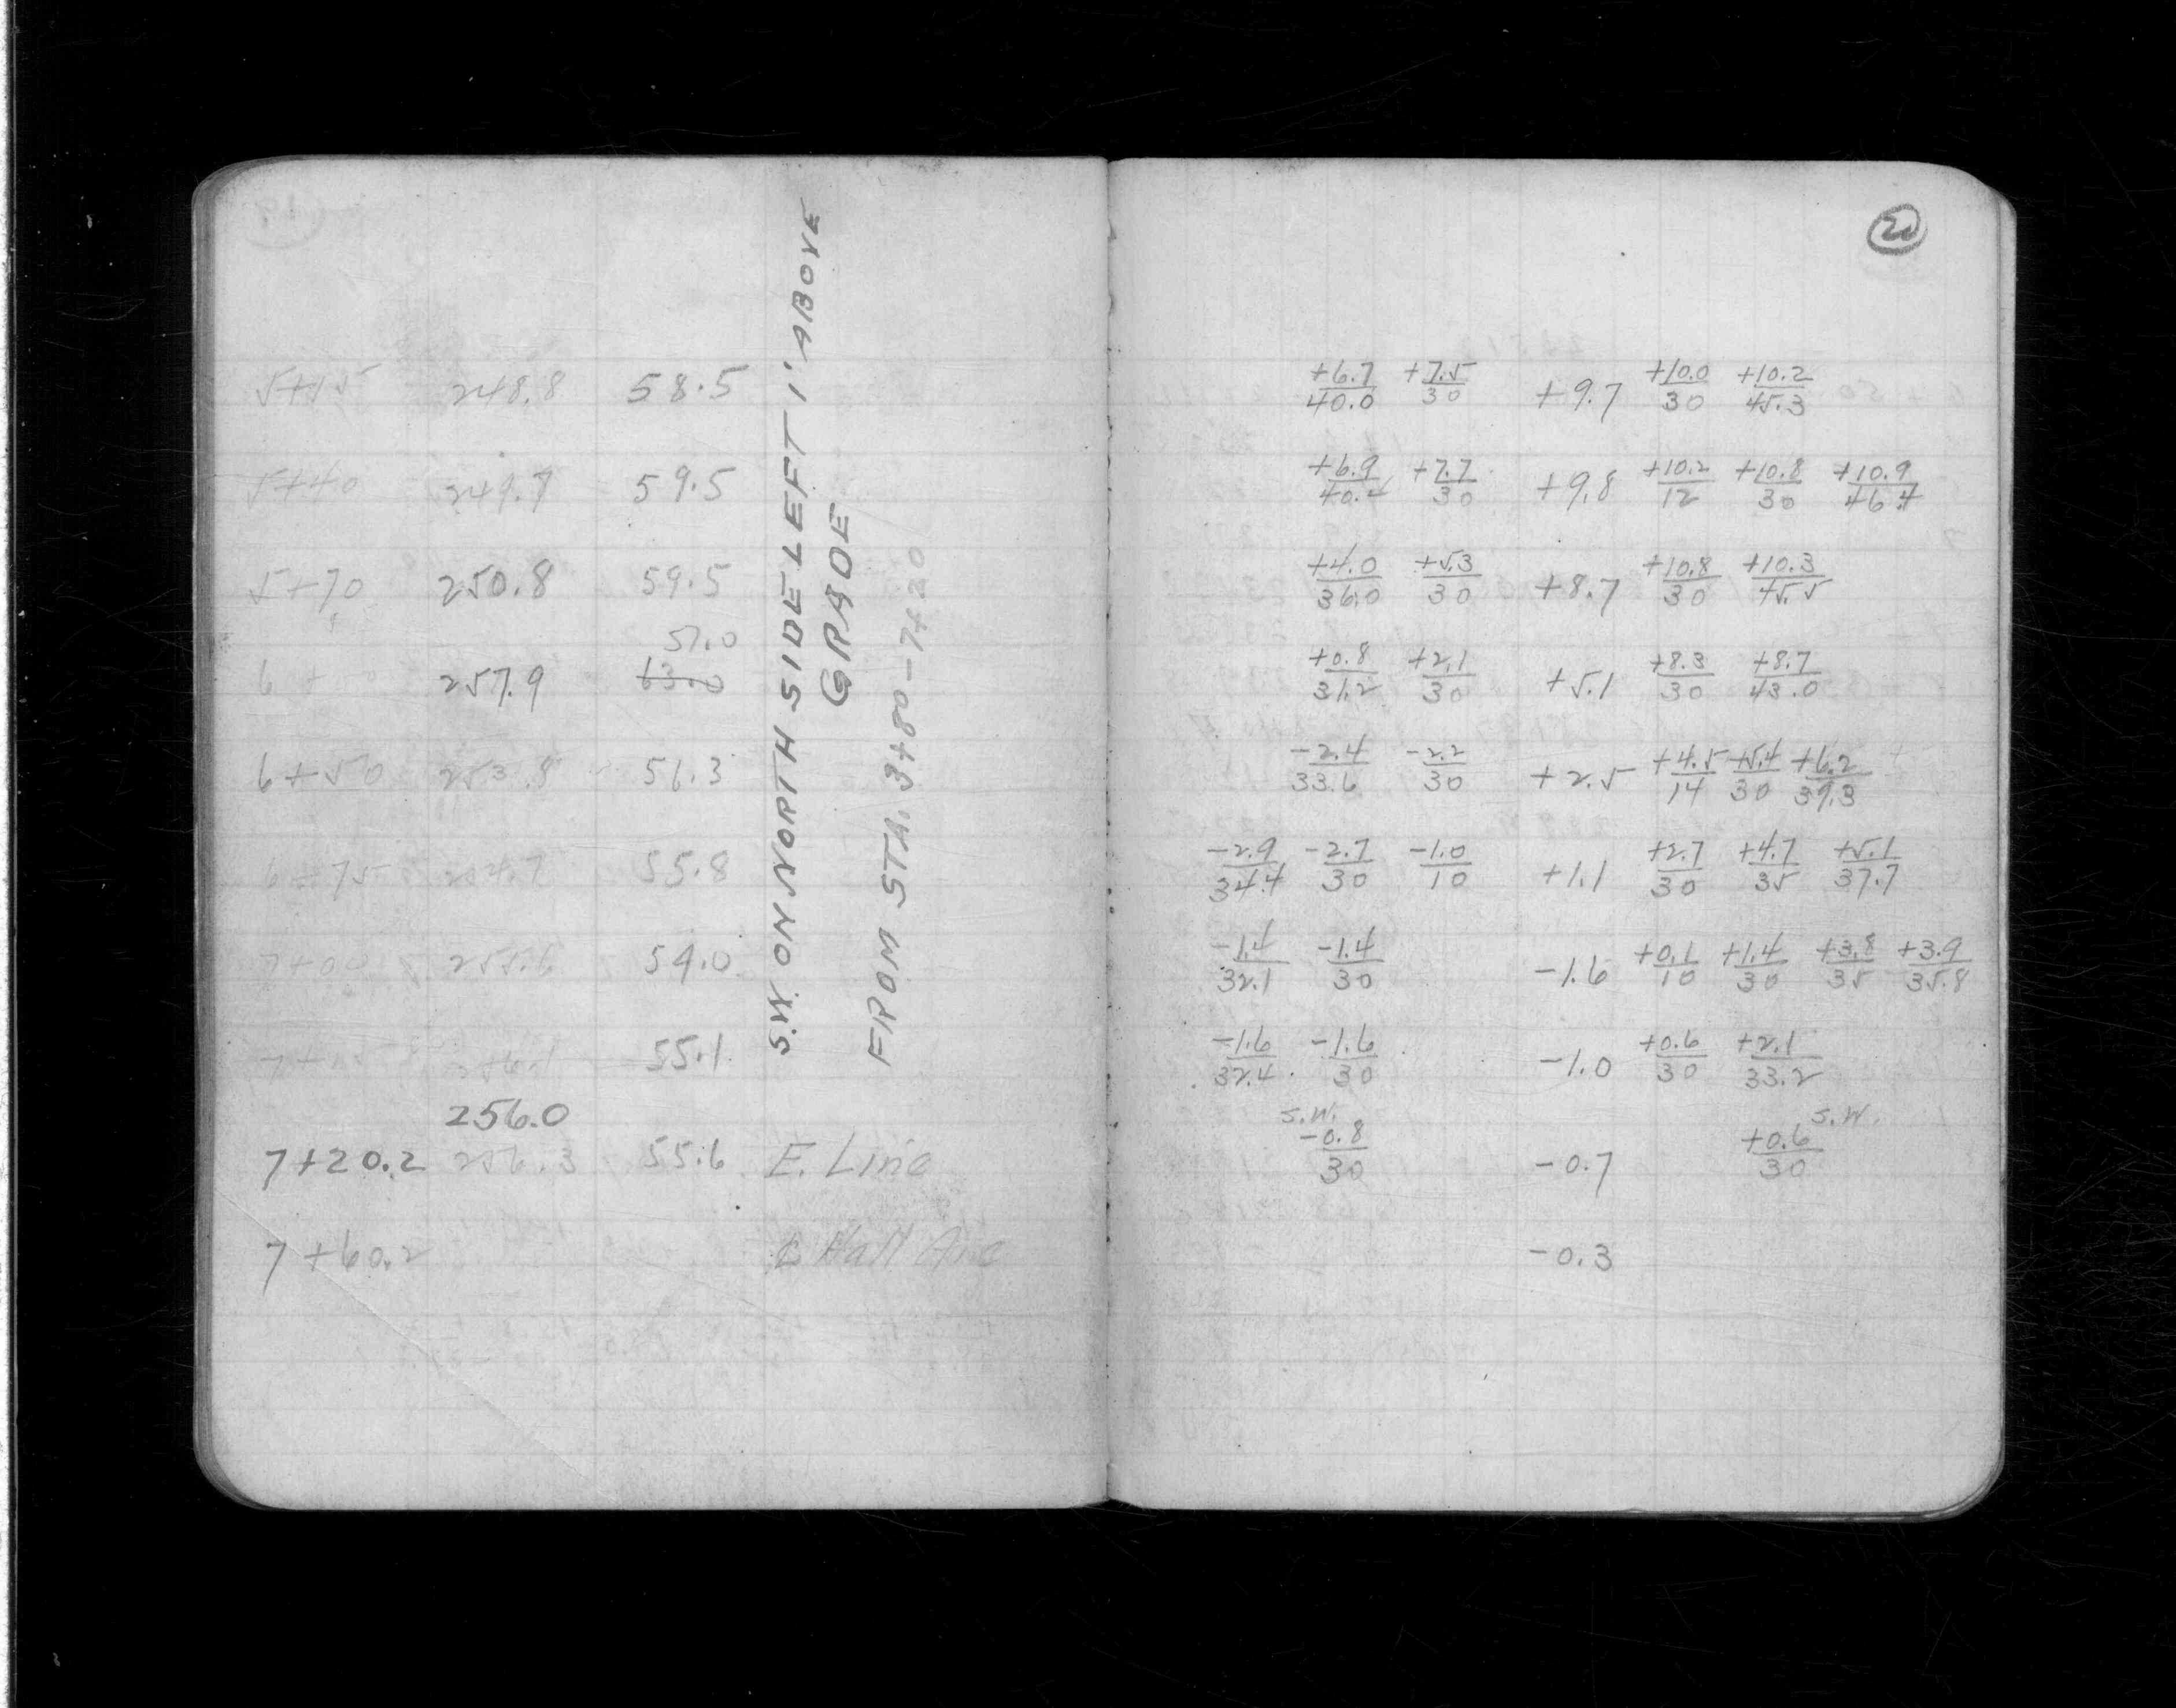 20
5+15 248.8 58.5
5+40 249.7 59.5
5+70 250.8 59.5
57.0
6 + 257.9 63.0
6+50 253.8 51.3
6+75 254.7 55.8
7+00 255.6 54.0
256.1 55.1
256.0
7+20.2 256.3 55.6 E. Line
7+60.2 Hall Ave
S.W. ON NORTH SIDE LEFT 1' ABOVE
GRADE
FROM STA. 3+80-7+20
+6.7/40.0 +7.5/30 +9.7 +10.0/30 +10.2/45.3
+6.9/40.4 +7.7/30 +9.8 +10.2/12 +10.8/30 +10.9/46.4
+4.0/36.0 +5.3/30 +8.7 +10.8/30 +10.3/45.5
+0.8/31.2 +2.1/30 +5.1 +8.3/30 +8.7/43.0
-2.4/33.6 -2.2/30 +2.5 +4.5/14 +5.4/30 +6.2/39.3
-2.9/34.4 -2.7/30 -1.0/10 +1.1 +2.7/30 +4.7/35 +5.1/37.7
-1.4/32.1 -1.4/30 -1.6 +0.1/10 +1.4/30 +3.8/35 +3.9/35.8
-1.6/32.4 -1.6/30 -1.0 +0.6/30 +2.1/33.2
S.W. S.W.
-0.8/30 -0.7 +0.6/30
-0.3